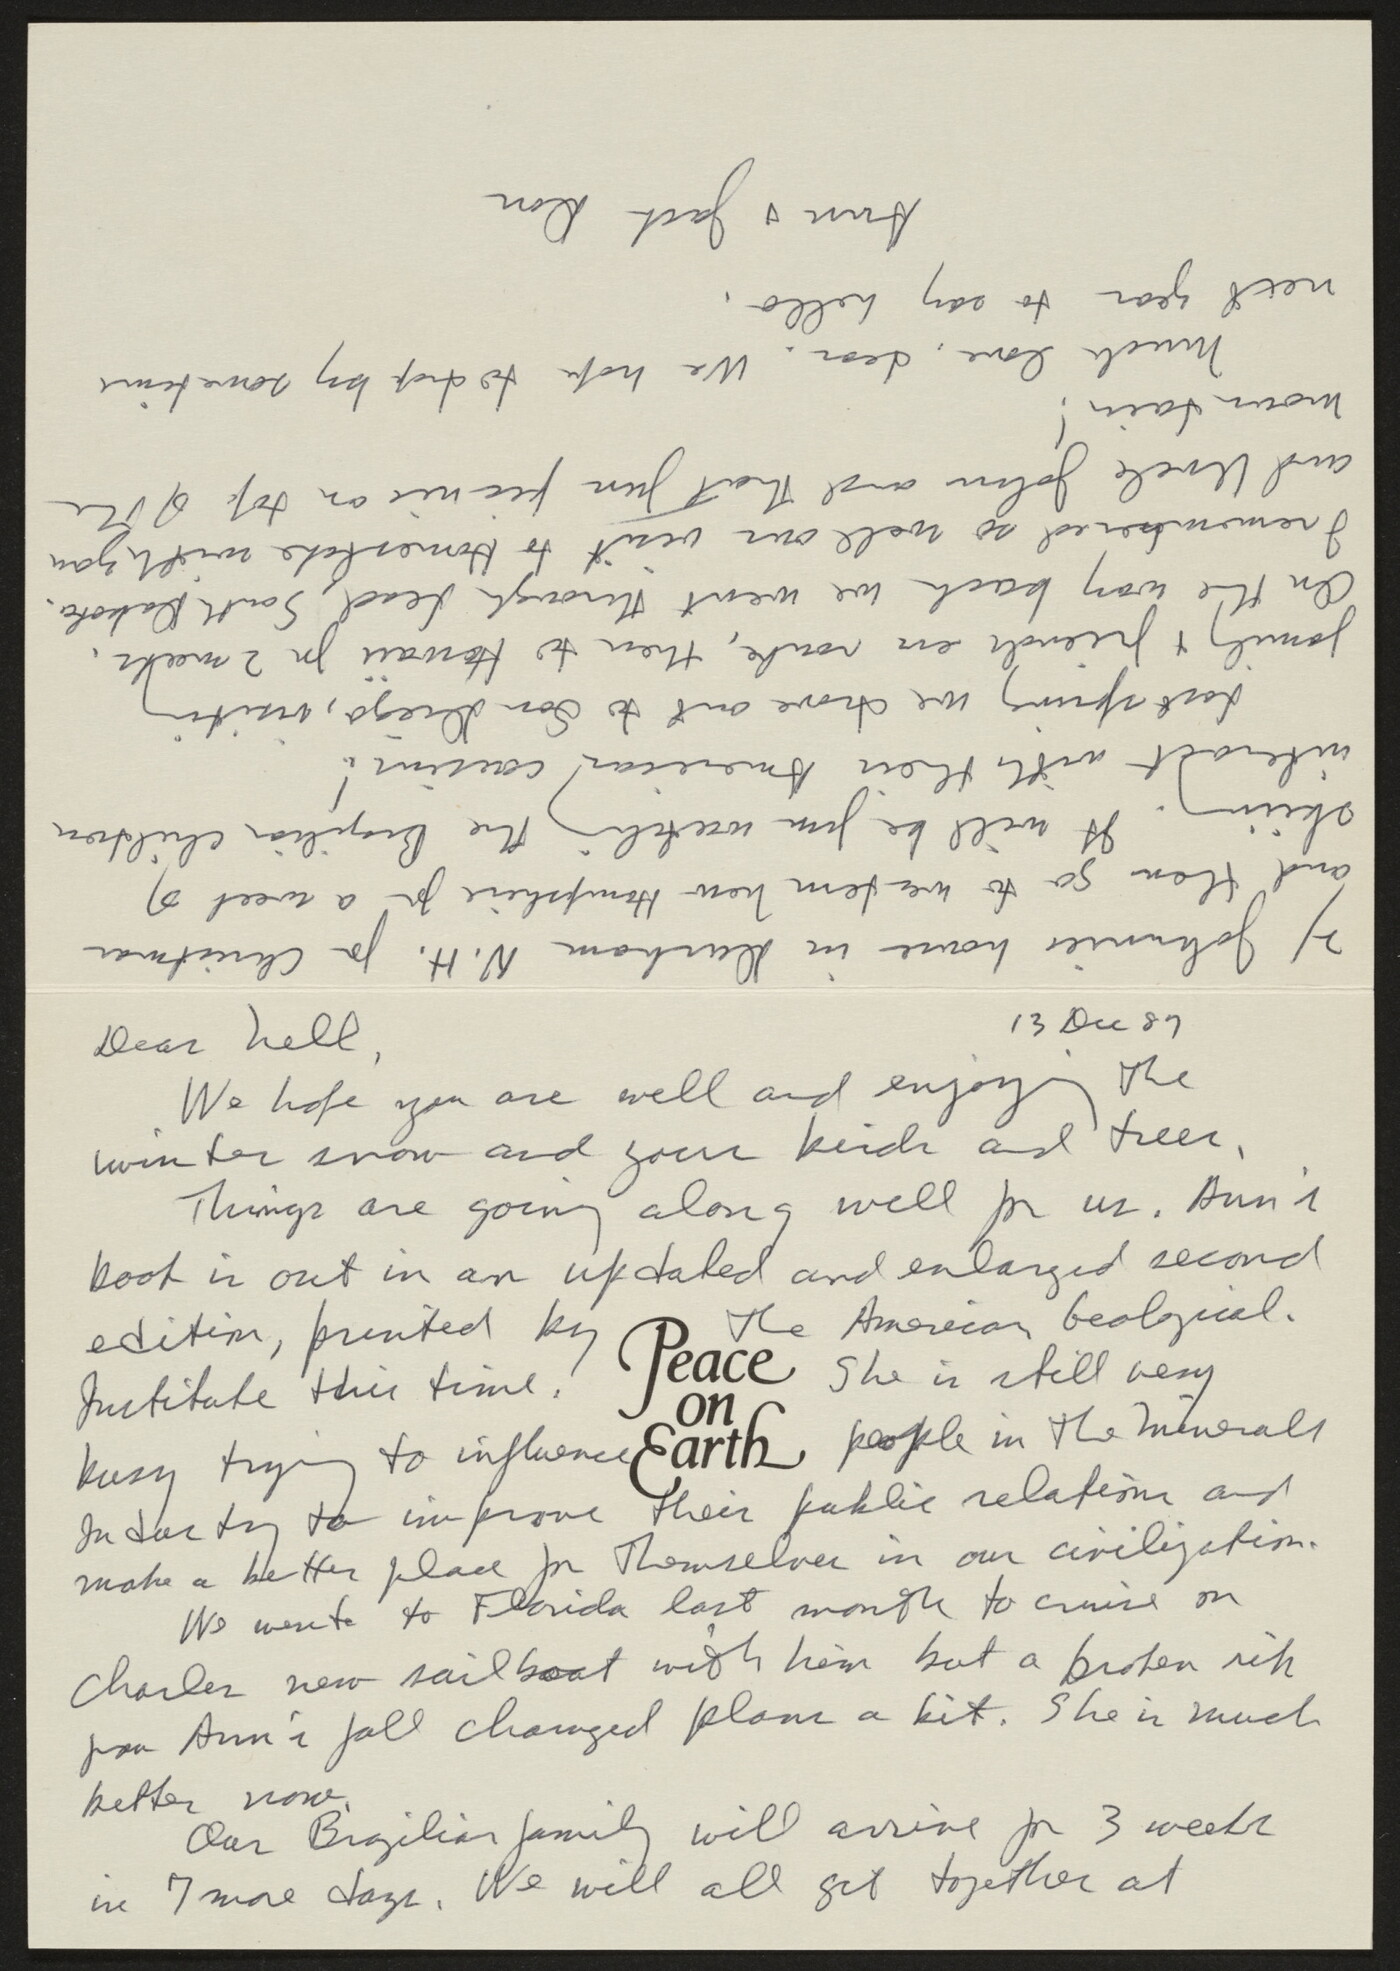 13 Dec 87
Dear Nell,
We hope you are well and enjoying the
winter snow and your birds and trees.
Things are going along well for us. Ann's
book is out in an updated and enlarged second
edition, printed by the American Geological
Institute this time. She is still very
busy trying to influence people in the Minerals
Industry to improve their public relations and
make a better place for themselves in our civilization.
Peace
on
Earth
We went to Florida last month to cruise on
Charles new sailboat with him but a broken rib
from Ann's fall changed plans a bit. She is much
better now.
Our Brazilian family will arrive for 3 weeks
in 7 more days. We will all get together at
2/ Johnnies house in Durham N.H. for Christmas
and then go to western New Hampshire for a week of
skiing. It will be fun watching the Brazilian children
interact with their American cousins!
Last spring we drove out to San Diego, visiting
family & friends en route, then to Hawaii for 2 weeks.
On the way back we went through Lead, South Dakota.
I remembered so well our visit to Homestake with you
and Uncle John and that fun picnic on top of the
mountain!
Much love, dear. We hope to drop by sometime
next year to say hello.
Ann & Jack Don